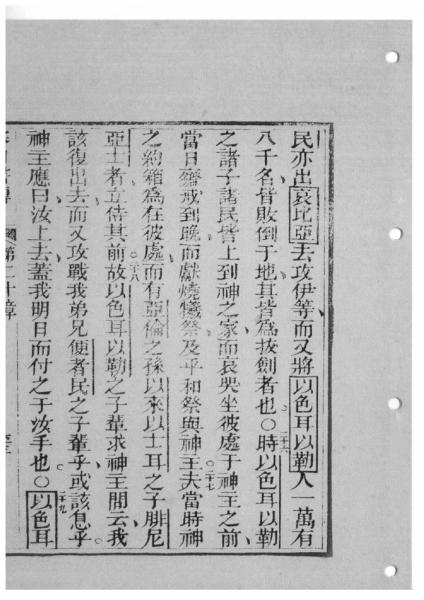 民亦出哀比亞去攻伊等而又將以色耳以勒人一萬有
八千名皆敗倒于地其皆為拔劍者也○二十六時以色耳以勒
之諸子諸民皆上到神之家而哀哭坐彼處于神主之前
當日齋戒到晚而獻燒犧祭及平和祭與神主○二十七夫當時神
之約箱為在彼處○二十八而有亞倫之孫以來以士耳之子腓尼
亞士者立侍其前故以色耳以勒之子輩求神主問云我
該復出去而又攻戰我弟兄便者民之子輩乎或該息乎
神主應曰汝上去蓋我明日而付之于汝手也○二十九以色耳
第二十章